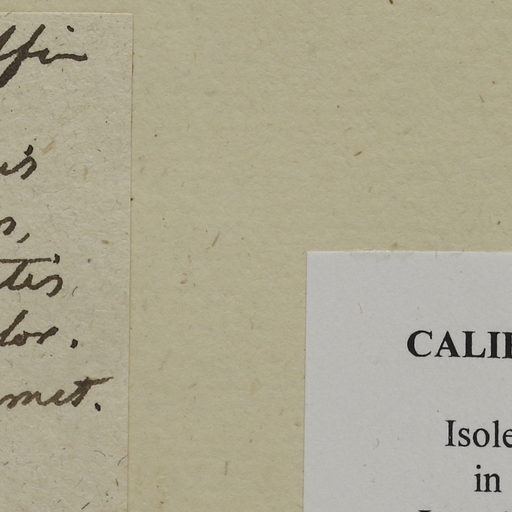 ffin
is
s,
tis
lor.
met.
CALI
Isole
in